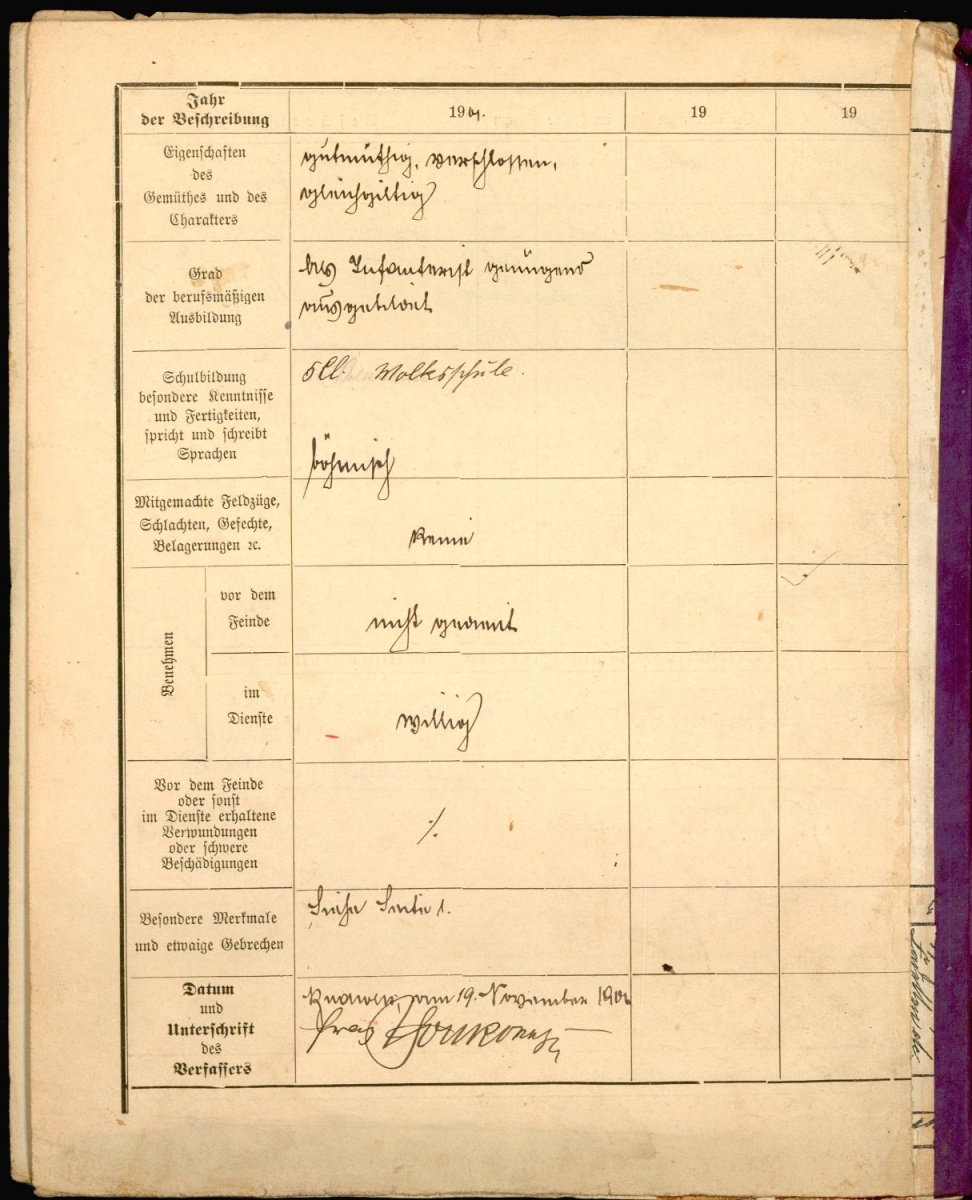 Jahr
der Beschreibung
1901.
19
19
Eigenschaften
des
Gemüthes und des
Charakters
gutmüthig, verschlossen,
gleichgiltig
Grad
der berufsmäßigen
Ausbildung
Als Infanterist genügend
ausgebildet
Schulbildung
besondere Kenntnisse
und Fertigkeiten,
spricht und schreibt
Sprachen
5 Cl. Volksschule.
böhmisch
Mitgemachte Feldzüge,
Schlachten, Gefechte,
Belagerungen ꝛc.
Keine
Benehmen
vor dem
Feinde
nicht gedient
im
Dienste
willig
Vor dem Feinde
oder sonst
im Dienste erhaltene
Verwundungen
oder schwere
Beschädigungen
./.
Besondere Merkmale
und etwaige Gebrechen
Siehe Seite 1.
Datum
und
Unterschrift
des
Verfassers
am 19. November 1901